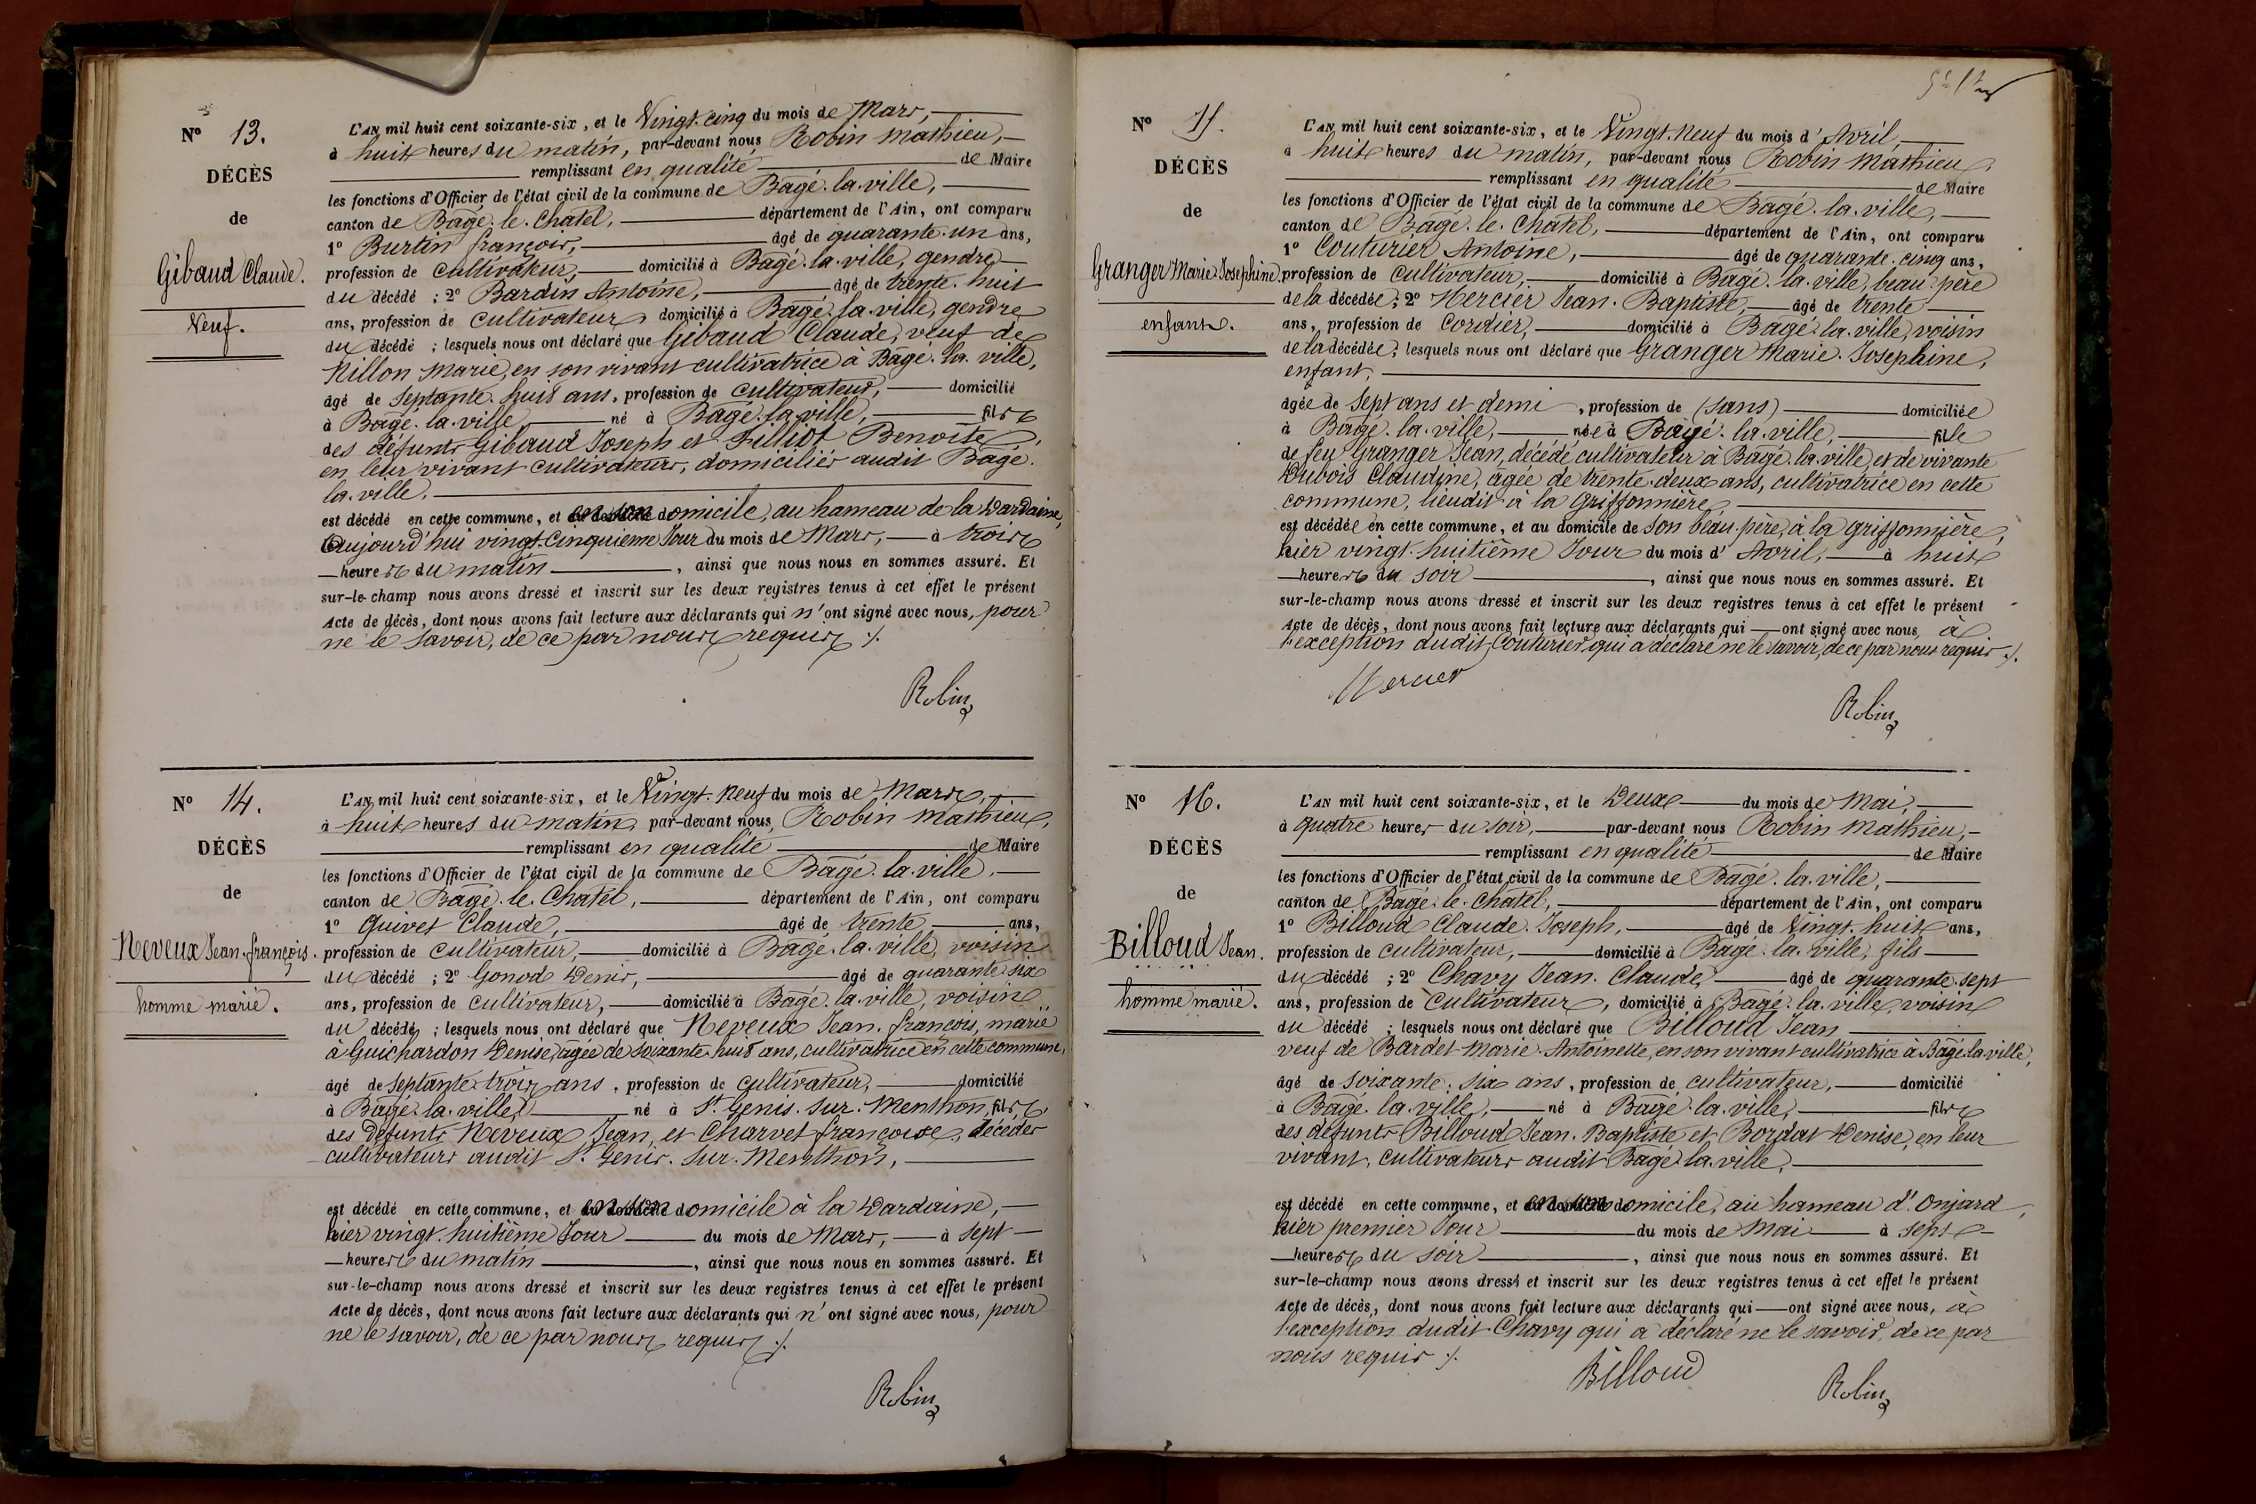 N° 13.
DÉCÈS
de
Gibaud Claude.
Veuf.
L'AN mil huit cent soixante-six, et le Vingt-cinq du mois de Mars,
à huit heures du matin, par-devant nous Robin Mathieu,
remplissant en qualité de Maire
les fonctions d'Officier de l'état civil de la commune de Bagé-la-ville,
canton de Bagé-le-Chatel, département de l'Ain, ont comparu
1° Burtin françois, âgé de quarante-un ans,
profession de cultivateur, domicilié à Bagé-la-ville, gendre
du décédé ; 2° Bardin Antoine, âgé de trente-huit
ans, profession de cultivateur domicilié à Bagé-la-ville, gendre
du décédé ; lesquels nous ont déclaré que Gibaud Claude, veuf de
Nillon Marie, en son vivant cultivatrice à Bagé-la-ville,
âgé de septante-huit ans, profession de cultivateur, domicilié
à Bagé-la-ville né à Bagé-la-ville, fils
des défunts Gibaud Joseph et Filliot Benoîte,
en leur vivant cultivateurs, domiciliés audit Bagé-
la-ville.
est décédé en cette commune, et en son domicile, au hameau de la Dardaine,
aujourd'hui vingt-cinquième Jour du mois de Mars, à trois
heures du matin, ainsi que nous nous en sommes assuré. Et
sur-le-champ nous avons dressé et inscrit sur les deux registres tenus à cet effet le présent
Acte de décès, dont nous avons fait lecture aux déclarants qui n'ont signé avec nous, pour
ne le savoir, de ce par nous requis ./.
Robin
N° 14.
DÉCÈS
de
Neveux Jean-françois.
homme marié.
L'AN mil huit cent soixante-six, et le Vingt-neuf du mois de Mars,
à huit heures du matin, par-devant nous Robin Mathieu,
remplissant en qualité de Maire
les fonctions d'Officier de l'état civil de la commune de Bagé-la-ville,
canton de Bagé-le-Chatel, département de l'Ain, ont comparu
1° Quivet Claude, âgé de trente ans,
profession de cultivateur, domicilié à Bagé-la-ville, voisin
du décédé ; 2° Gonod Denis, âgé de quarante-six
ans, profession de cultivateur, domicilié à Bagé-la-ville, voisin
du décédé, ; lesquels nous ont déclaré que Neveux Jean-françois, marié
à Guichardon Denise, âgée de soixante-huit ans, cultivatrice en cette commune,
âgé de septante-trois ans, profession de cultivateur, domicilié
à Bagé-la-ville, né à St Genis-sur-Menthon, fils
des défunts Neveux Jean, et Charvet françoise, décédés
cultivateurs audit St Genis-sur-Menthon,
est décédé en cette commune, et en son domicile à la Dardaine,
hier vingt-huitième Jour du mois de Mars, à sept
heures du matin, ainsi que nous nous en sommes assuré. Et
sur-le-champ nous avons dressé et inscrit sur les deux registres tenus à cet effet le présent
Acte de décès, dont nous avons fait lecture aux déclarants qui n'ont signé avec nous, pour
ne le savoir, de ce par nous requis ./.
Robin
N° 15.
DÉCÈS
de
Granger Marie Josephine.
enfant.
L'AN mil huit cent soixante-six, et le Vingt-neuf du mois d'Avril,
à huit heures du matin, par-devant nous Robin Mathieu,
remplissant en qualité de Maire
les fonctions d'Officier de l'état civil de la commune de Bagé-la-ville,
canton de Bagé-le-Chatel, département de l'Ain, ont comparu
1° Couturier Antoine, âgé de quarante-cinq ans,
profession de cultivateur, domicilié à Bagé-la-ville, beau-père
de la décédée ; 2° Mercier Jean-Baptiste, âgé de trente
ans, profession de Cordier, domicilié à Bagé-la-ville, voisin
de la décédée ; lesquels nous ont déclaré que Granger Marie-Josephine,
enfant,
âgée de sept ans et demi, profession de (sans) domiciliée
à Bagé-la-ville, née à Bagé-la-ville, fille
de feu Granger Jean, décédé cultivateur à Bagé-la-ville, et de vivante
Dubois Claudine, âgée de trente-deux ans, cultivatrice en cette
commune, lieudit à la Griffonnière,
est décédée en cette commune, et au domicile de son beau-père, à la griffonnière,
hier vingt-huitième Jour du mois d'Avril, à huit
heures du soir, ainsi que nous nous en sommes assuré. Et
sur-le-champ nous avons dressé et inscrit sur les deux registres tenus à cet effet le présent
Acte de décès, dont nous avons fait lecture aux déclarants qui ont signé avec nous, à
l'exception dudit Couturier qui a déclaré ne le savoir, de ce par nous requis ./.
Mercier
Robin
N° 16.
DÉCÈS
de
Billoud Jean.
homme marié.
L'AN mil huit cent soixante-six, et le Deux du mois de Mai,
à quatre heures du soir, par-devant nous Robin Mathieu,
remplissant en qualité de Maire
les fonctions d'Officier de l'état civil de la commune de Bagé-la-ville,
canton de Bagé-le-Chatel, département de l'Ain, ont comparu
1° Billoud Claude-Joseph, âgé de Vingt-huit ans,
profession de cultivateur, domicilié à Bagé-la-ville, fils
du décédé ; 2° Chavy Jean-Claude, âgé de quarante-sept
ans, profession de cultivateur, domicilié à Bagé-la-ville, voisin
du décédé ; lesquels nous ont déclaré que Billoud Jean
veuf de Bardet Marie-Antoinette, en son vivant cultivatrice à Bagé-la-ville,
âgé de soixante-six ans, profession de cultivateur, domicilié
à Bagé-la-ville, né à Bagé-la-ville, fils
des défunts Billoud Jean-Baptiste et Bordat Denise, en leur
vivant, cultivateurs audit Bagé-la-ville,
est décédé en cette commune, et en son domicile, au hameau d'Onjard,
hier premier Jour du mois de Mai à sept
heures du soir, ainsi que nous nous en sommes assuré. Et
sur-le-champ nous avons dressé et inscrit sur les deux registres tenus à cet effet le présent
Acte de décès, dont nous avons fait lecture aux déclarants qui ont signé avec nous, à
l'exception dudit Chavy qui a déclaré ne le savoir, de ce par
nous requis ./.
Billoud
Robin